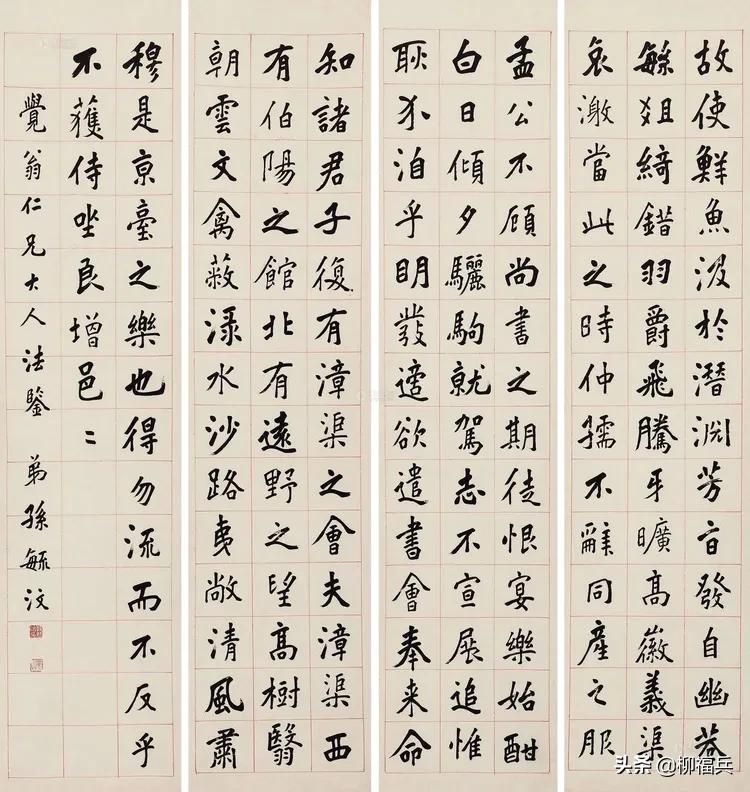 故使鮮魚汲於潛渊芳旨發自幽巷
緐俎綺錯羽爵飛騰牙曠高徽義渠
哀激當此之時仲孺不辭同產之服
孟公不顧尚書之期徒恨宴樂始酣
白日傾夕驪駒就駕志不宣展追惟
耿尒洎乎明發適欲遣書會奉来命
知諸君子復有漳渠之會夫漳渠西
有伯陽之館北有遠野之望高樹翳
朝雲文禽蔽淥水沙路夷敞清風肅
穆是京臺之樂也得勿流而不反乎
不獲侍坐良增邑〻
覺翁仁兄大人法鑒 弟孫毓汶
头条 @柳福兵